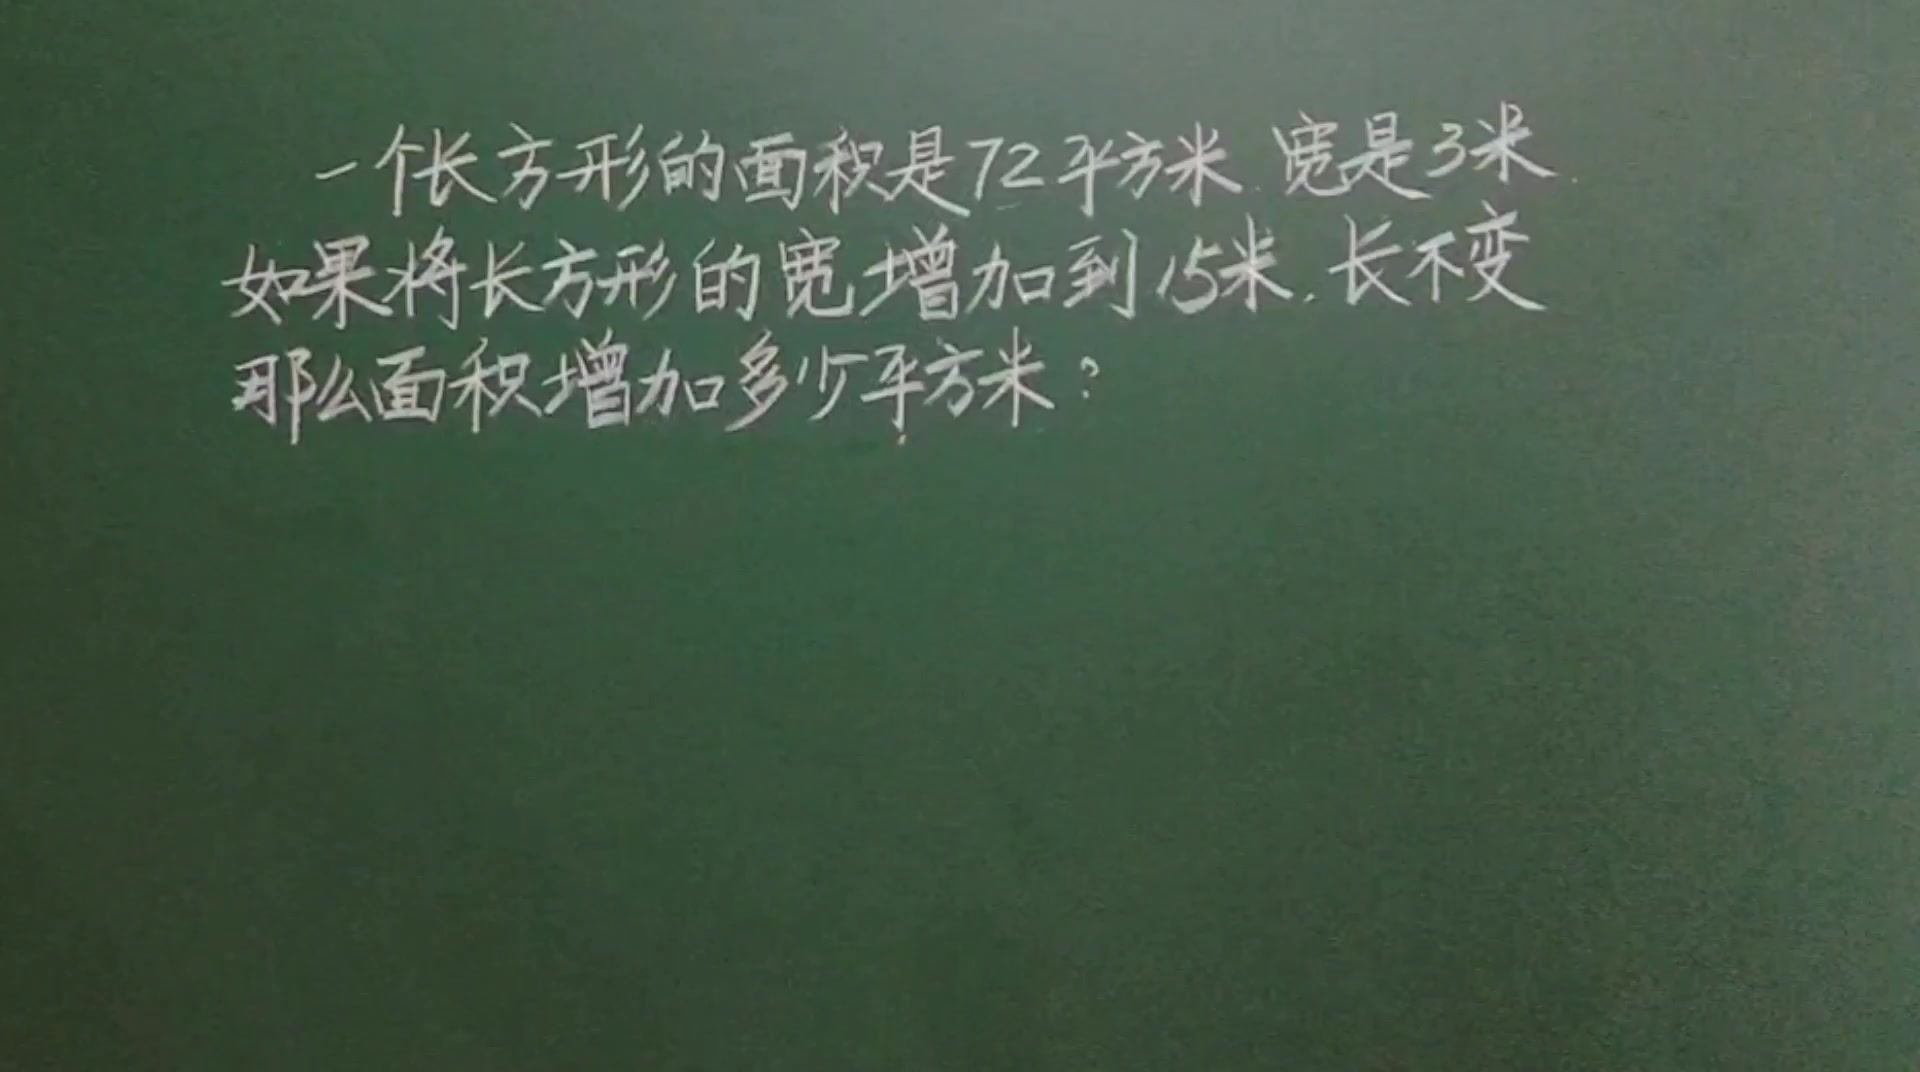 一个长方形的面积是72平方米.宽是3米.
如果将长方形的宽增加到15米.长不变
那么面积增加多少平方米?